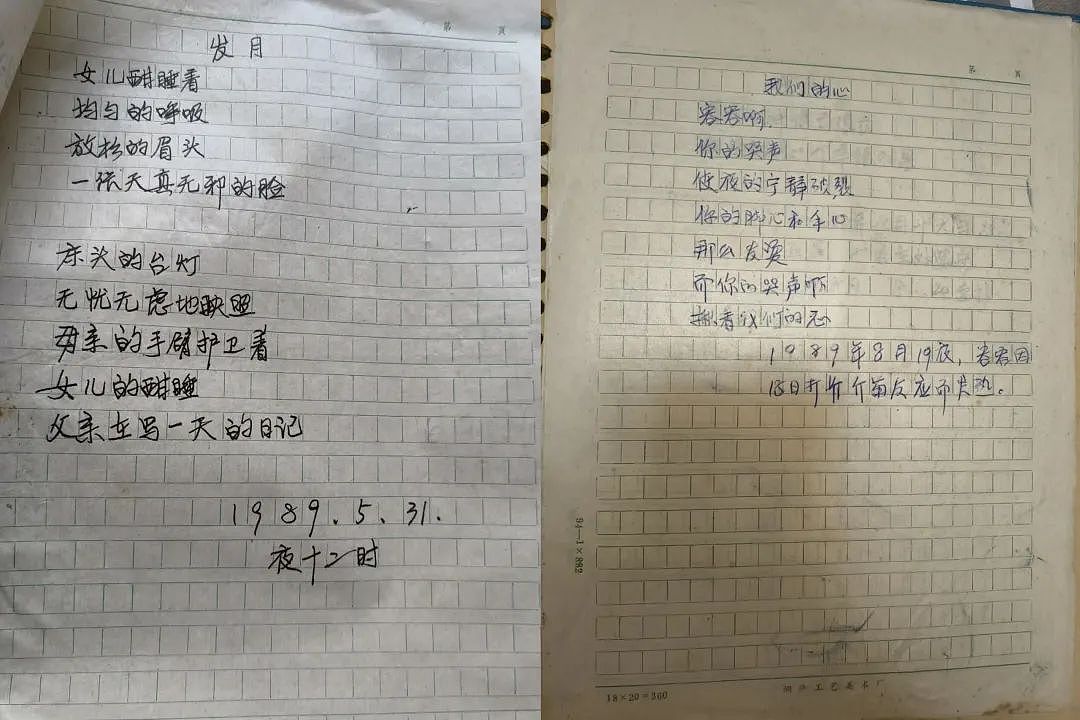 第 页
岁月
女儿酣睡着
均匀的呼吸
放松的眉头
一张天真无邪的脸
床头的台灯
无忧无虑地映照
母亲的手臂护卫着
女儿的酣睡
父亲在写一天的日记
1989.5.31.
夜十二时
第 页
我们的心
容容啊
你的哭声
使夜的宁静破裂
你的脚心和手心
那么发烫
而你的哭声啊
揪着我们的心
1989年8月19夜,容容因
18日打
反应而发热。
84—1×882
18×20=360
工艺美术厂